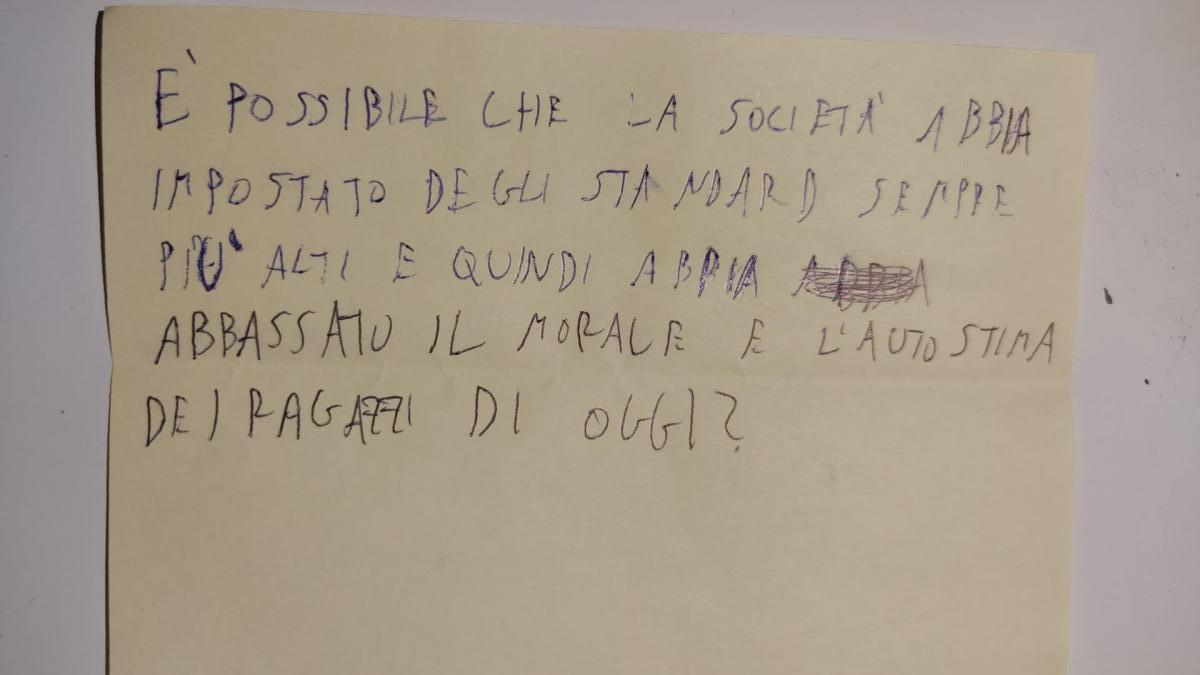 È POSSIBILE CHE LA SOCIETÀ ABBIA
IMPOSTATO DEGLI STANDARD SEMPRE
PIÙ ALTI E QUINDI ABBIA
ABBASSATO IL MORALE E L'AUTOSTIMA
DEI RAGAZZI DI OGGI?